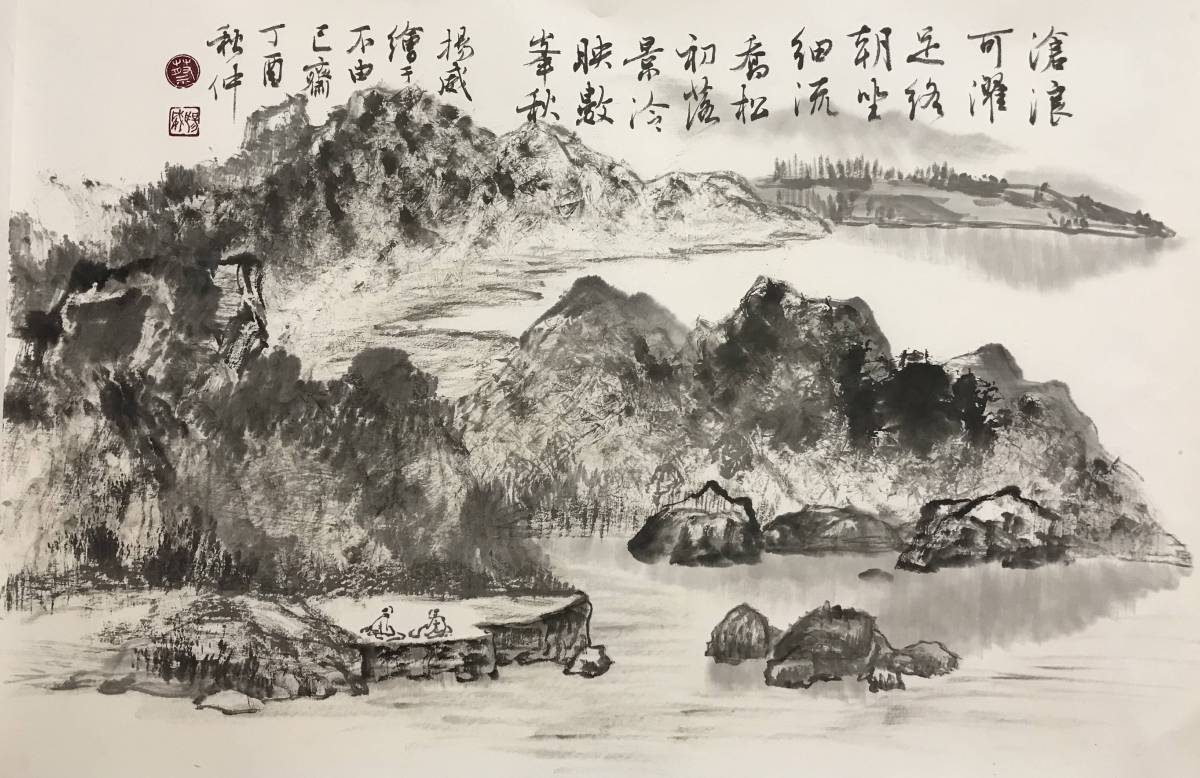 滄浪
可濯
足終
朝坐
細流
喬松
初落
景冷
映數
峯秋
楊威
繪于
不由
己齋
丁酉
秋仲
蔡